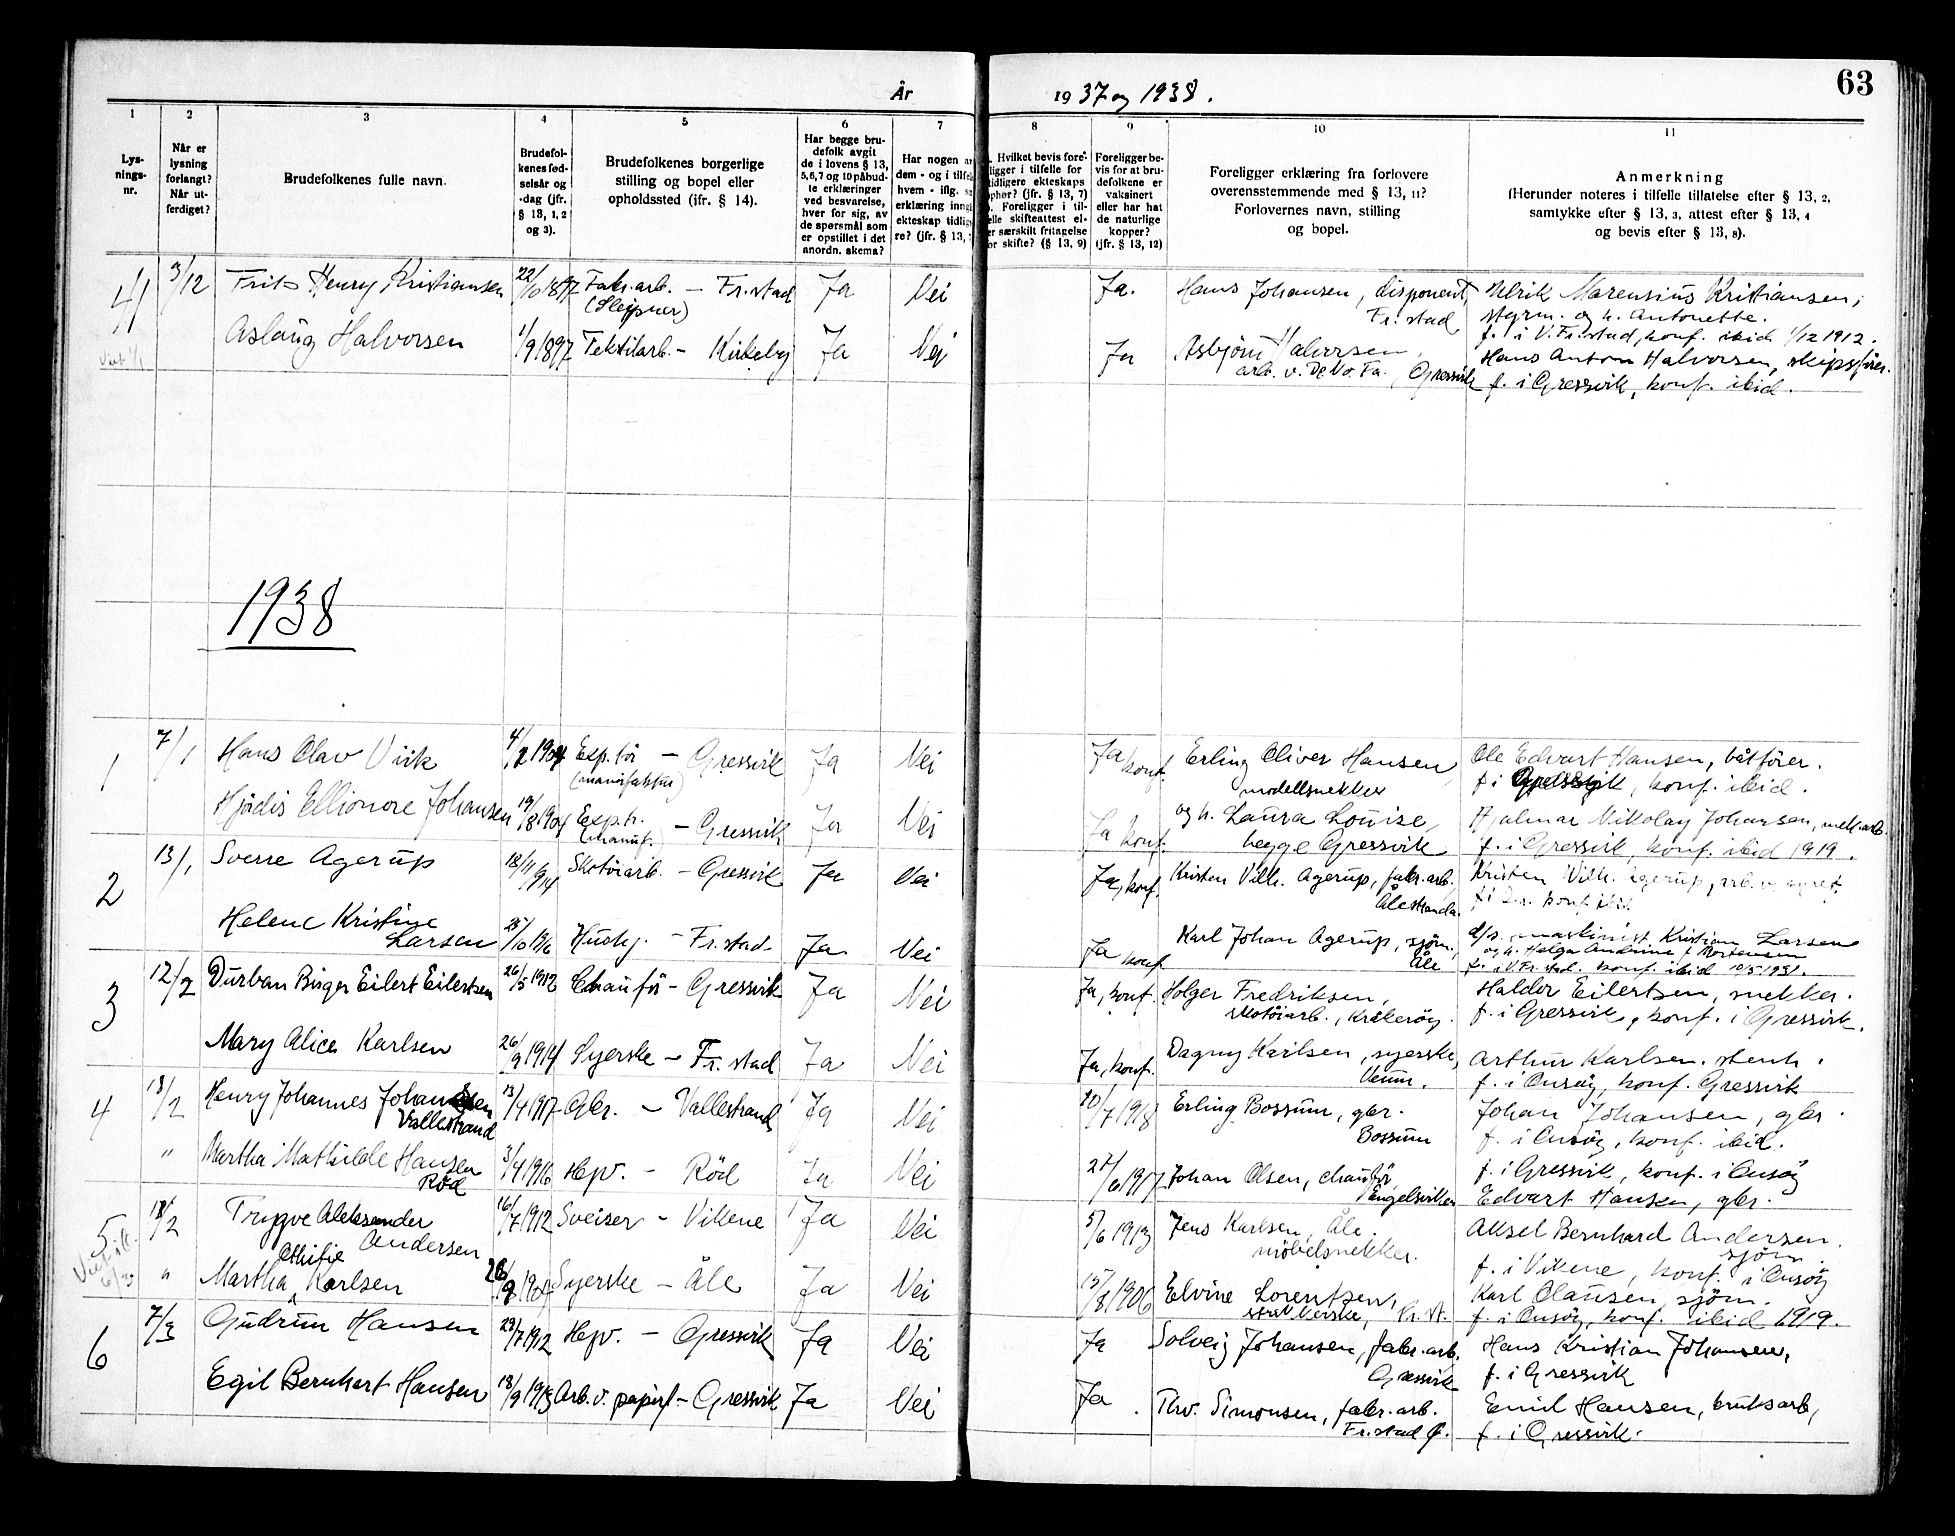 63
År
19 37 og 1938.
1
2
3
4
5
6
7
8
9
10
11
Lys-
nings-
nr.
Når er
lysning
forlangt?
Når ut-
ferdiget?
Brudefolkenes fulle navn.
Brudefol-
kenes fød-
selsår og
-dag (jfr.
§ 13, 1, 2
og 3).
Brudefolkenes borgerlige
stilling og bopel eller
opholdssted (ifr. § 14).
Har begge bru-
defolk avgit
de i lovens § 13,
5,6,7 og 10 påbud-
te erklæringer
ved besvarelse,
hver for sig, av
de spørsmål som
er opstillet i det
anordn. skema?
Har nogen a
dem - og i tilfe
hvem - iflg. s
erklæring inng
ekteskap tidlig
re? (jfr. § 13,
Hvilket bevis fore-
ligger i tilfelle for
tidligere ekteskaps
ophør? (jfr. § 13, 7)
Foreligger i til-
elle skifteattest el-
er særskilt fritagelse
or skifte? (§ 13, 9)
Foreligger be-
vis for at bru-
defolkene er
vaksinert
eller har hat
de naturlige
kopper?
(jfr. § 13, 12)
Foreligger erklæring fra forlovere
overensstemmende med § 13, 11?
Forlovernes navn, stilling
og bopel.
Anmerkning
(Herunder noteres i tilfelle tillatelse efter § 13, 2,
samtykke efter § 13, 3, attest efter § 13, 4
og bevis efter § 13, 8).
41 3/12 Frits Henry Kristiansen 22/10 1897 Fabr.arb. – Fr.stad Ja Nei Ja. Hans Johansen, disponent, Ulrik Marensius Kristiansen,
(Sleipner) Fr. stad styrm. og h. Antonette.
f. i V. Fr.stad, konf. ibid 1/12 1912.
Aslaug Halvorsen 1/9 1897 Tekstilarb. – Kirkeby Ja Nei Ja Asbjørn Halvorsen, Hans Anton Halvorsen, skipsfører.
arb. v. De No. Fa., Gressvik f. i Gressvik, konf. ibid.
1938
1 7/1 Hans Olav Viik 1904 Exp.tør – Gressvik Ja Nei Ja konf. Erling Oliver Hansen Ole Edvart Hansen, båtfører.
(manufaktur) modellsnekker f. i Gressvik, konf. ibid.
Hjødis Ellionore Johansen 19/8 1904 Exp.tr. – Gressvik Ja Nei Ja konf. og h. Laura Louise, Hjalmar Nikolay Johansen, mek.arb.
(manuf.) begge Gressvik f. i Gressvik, konf. ibid 1919.
2 13/1 Sverre Agerup 18/11 1914 Skotøiarb. – Gressvik Ja Nei Ja, konf. Kristen Vilh. Agerup, fabr.arb. Kristen Wilh. Agerup, arb.
Ålestranda.
Helene Kristine
Larsen 25/10 1916 Hushj. – Fr.stad Ja Nei Ja konf. Karl Johan Agerup, sjøm. d/o. maskinist Kristian Larsen
Åle og h. Helga Andrine f. Mortensen
f. i V. Fr.stad. konf. ibid 10/5 1931.
3 12/2 Durban Birger Eilert Eilertsen 26/5 1912 Chaufør – Gressvik Ja Nei Ja, konf. Holger Fredriksen, Haldor Eilertsen, snekker.
skotøiarb., Kråkerøy. f. i Gressvik, konf. i Gressvik.
Mary Alice Karlsen 26/9 1914 Syerske – Fr. stad Ja Nei Ja, konf. Dagny Karlsen, syerske, Arthur Karlsen. stenh.
Veum. f. i Onsøy, konf. Gressvik
4 18/2 Henry Johannes Johansen 13/4 1917 Gbr. – Vallestrand Ja Nei 10/7 1918 Erling Bossum, gbr. Johan Johansen, gbr.
Vallestrand Bossum f. i Onsøy, konf. ibid.
" Martha Mathilde Hansen 3/4 1916 Hpv. – Rød Ja Nei 1917 Johan Olsen, chaufør, f. i Gressvik, konf. i Onsøy
Rød Engelsviken Edvart Hansen, gbr.
5 18/2 Trygve Aleksander 16/7 1912 Sveiser – Vikene Ja Nei 5/6 1913 Jens Karlsen, Åle. Aksel Bernhard Andersen.
Andersen møbelsnekker. sjøm.
f. i Vikene, konf. i Onsøy
" Martha Karlsen Syerske – Åle Ja Nei 15/8 1906 Elvine Lorentsen, Karl Clausen, sjøm.
Fr. st. f. i Onsøy, konf. ibid 1919.
6 7/3 Gudrun Hansen 29/7 1912 Hpv. – Gressvik Ja Nei Ja Solveig Johansen, fabr.arb. Hans Kristian Johansen,
Gressvik f. i Gressvik
Egil Bernhart Hansen 18/9 1913 Arb. v. papirf. – Gressvik Ja Nei Ja Thv. Simonsen, fabr.arb. Emil Hansen, bruksarb,
Fr.stad Ø. f. i Gressvik.